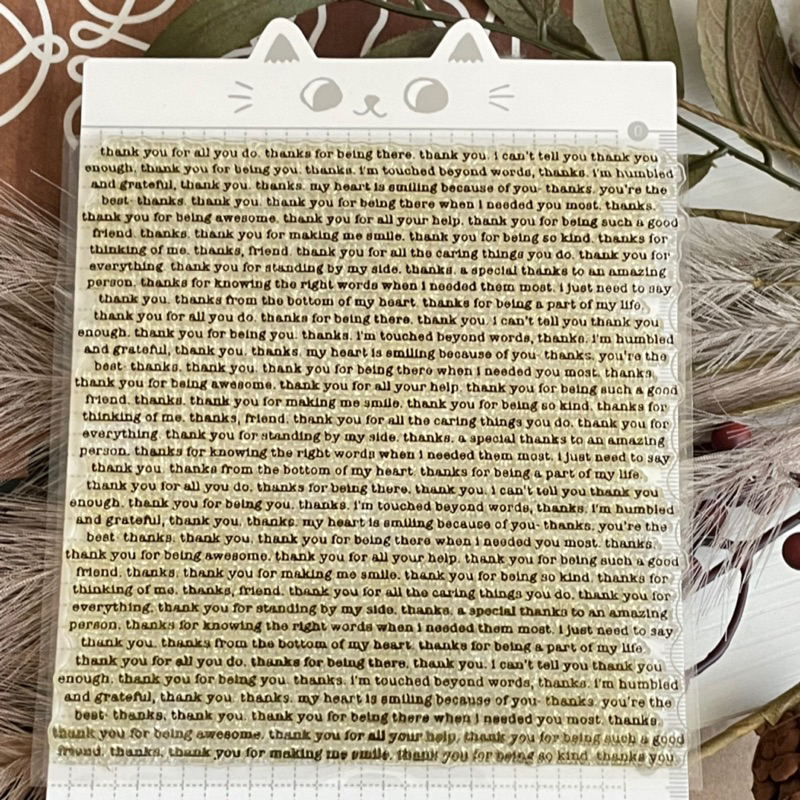 0
thank you for all you do. thanks for being there. thank you. i can't tell you thank you
enough. thank you for being you. thanks. i'm touched beyond words, thanks. i'm humbled
and grateful, thank you. thanks. my heart is smiling because of you- thanks. you're the
best- thanks. thank you. thank you for being there when i needed you most. thanks.
thank you for being awesome. thank you for all your help. thank you for being such a good
friend. thanks. thank you for making me smile. thank you for being so kind. thanks for
thinking of me. thanks, friend. thank you for all the caring things you do. thank you for
everything. thank you for standing by my side. thanks. a special thanks to an amazing
person. thanks for knowing the right words when i needed them most. i just need to say
thank you. thanks from the bottom of my heart. thanks for being a part of my life.
thank you for all you do. thanks for being there. thank you. i can't tell you thank you
enough. thank you for being you. thanks. i'm touched beyond words, thanks. i'm humbled
and grateful, thank you. thanks. my heart is smiling because of you- thanks. you're the
best- thanks. thank you. thank you for being there when i needed you most. thanks.
thank you for being awesome. thank you for all your help. thank you for being such a good
friend. thanks. thank you for making me smile. thank you for being so kind. thanks for
thinking of me. thanks, friend. thank you for all the caring things you do. thank you for
everything. thank you for standing by my side. thanks. a special thanks to an amazing
person. thanks for knowing the right words when i needed them most. i just need to say
thank you. thanks from the bottom of my heart. thanks for being a part of my life.
thank you for all you do. thanks for being there. thank you. i can't tell you thank you
enough. thank you for being you. thanks. i'm touched beyond words, thanks. i'm humbled
and grateful, thank you. thanks. my heart is smiling because of you- thanks. you're the
best- thanks. thank you. thank you for being there when i needed you most. thanks.
thank you for being awesome. thank you for all your help. thank you for being such a good
friend. thanks. thank you for making me smile. thank you for being so kind. thanks for
thinking of me. thanks, friend. thank you for all the caring things you do. thank you for
everything. thank you for standing by my side. thanks. a special thanks to an amazing
person. thanks for knowing the right words when i needed them most. i just need to say
thank you. thanks from the bottom of my heart. thanks for being a part of my life.
thank you for all you do. thanks for being there. thank you. i can't tell you thank you
enough. thank you for being you. thanks. i'm touched beyond words, thanks. i'm humbled
and grateful, thank you. thanks. my heart is smiling because of you- thanks. you're the
best- thanks. thank you. thank you for being there when i needed you most. thanks.
thank you for being awesome. thank you for all your help. thank you for being such a good
friend. thanks. thank you for making me smile. thank you for being so kind. thanks you